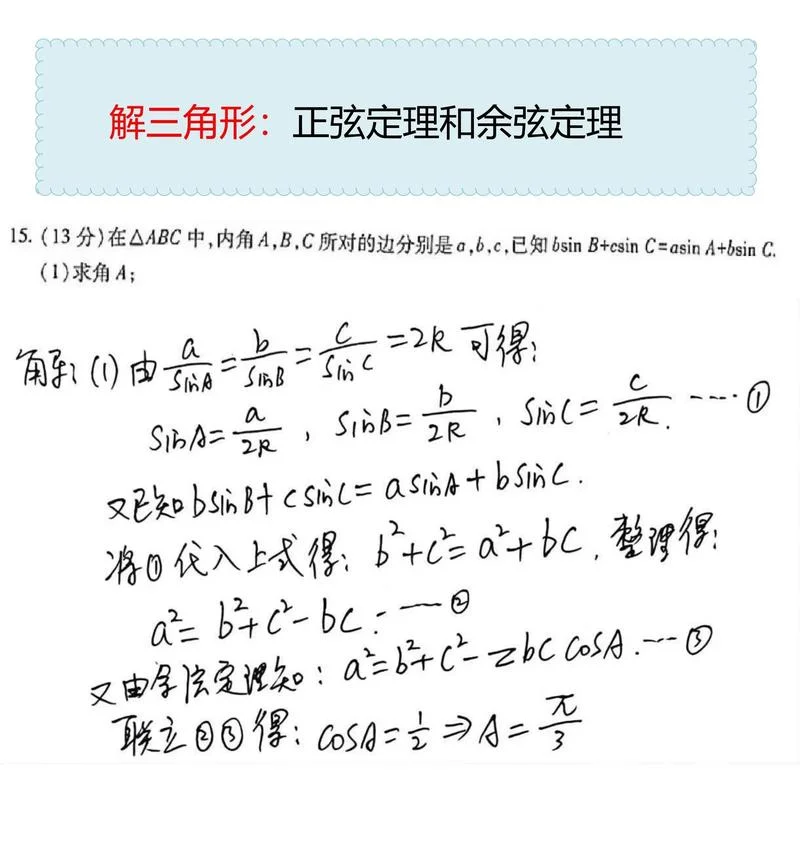 解三角形：正弦定理和余弦定理
15. (13 分)在△ABC 中,内角 A,B,C 所对的边分别是 a,b,c,已知 bsin B+csin C=asin A+bsin C.
(1)求角 A;
解: (1) 由 a/sinA = b/sinB = c/sinC = 2R 可得:
sinA = a/2R , sinB = b/2R , sinC = c/2R. ……①
又已知 bsinB + csinC = asinA + bsinC.
将①代入上式得: b²+c²=a²+bc, 整理得:
a²=b²+c²-bc. ……②
又由余弦定理知: a²=b²+c²-2bccosA. ……③
联立②③得: cosA=1/2 ⇒ A=π/3